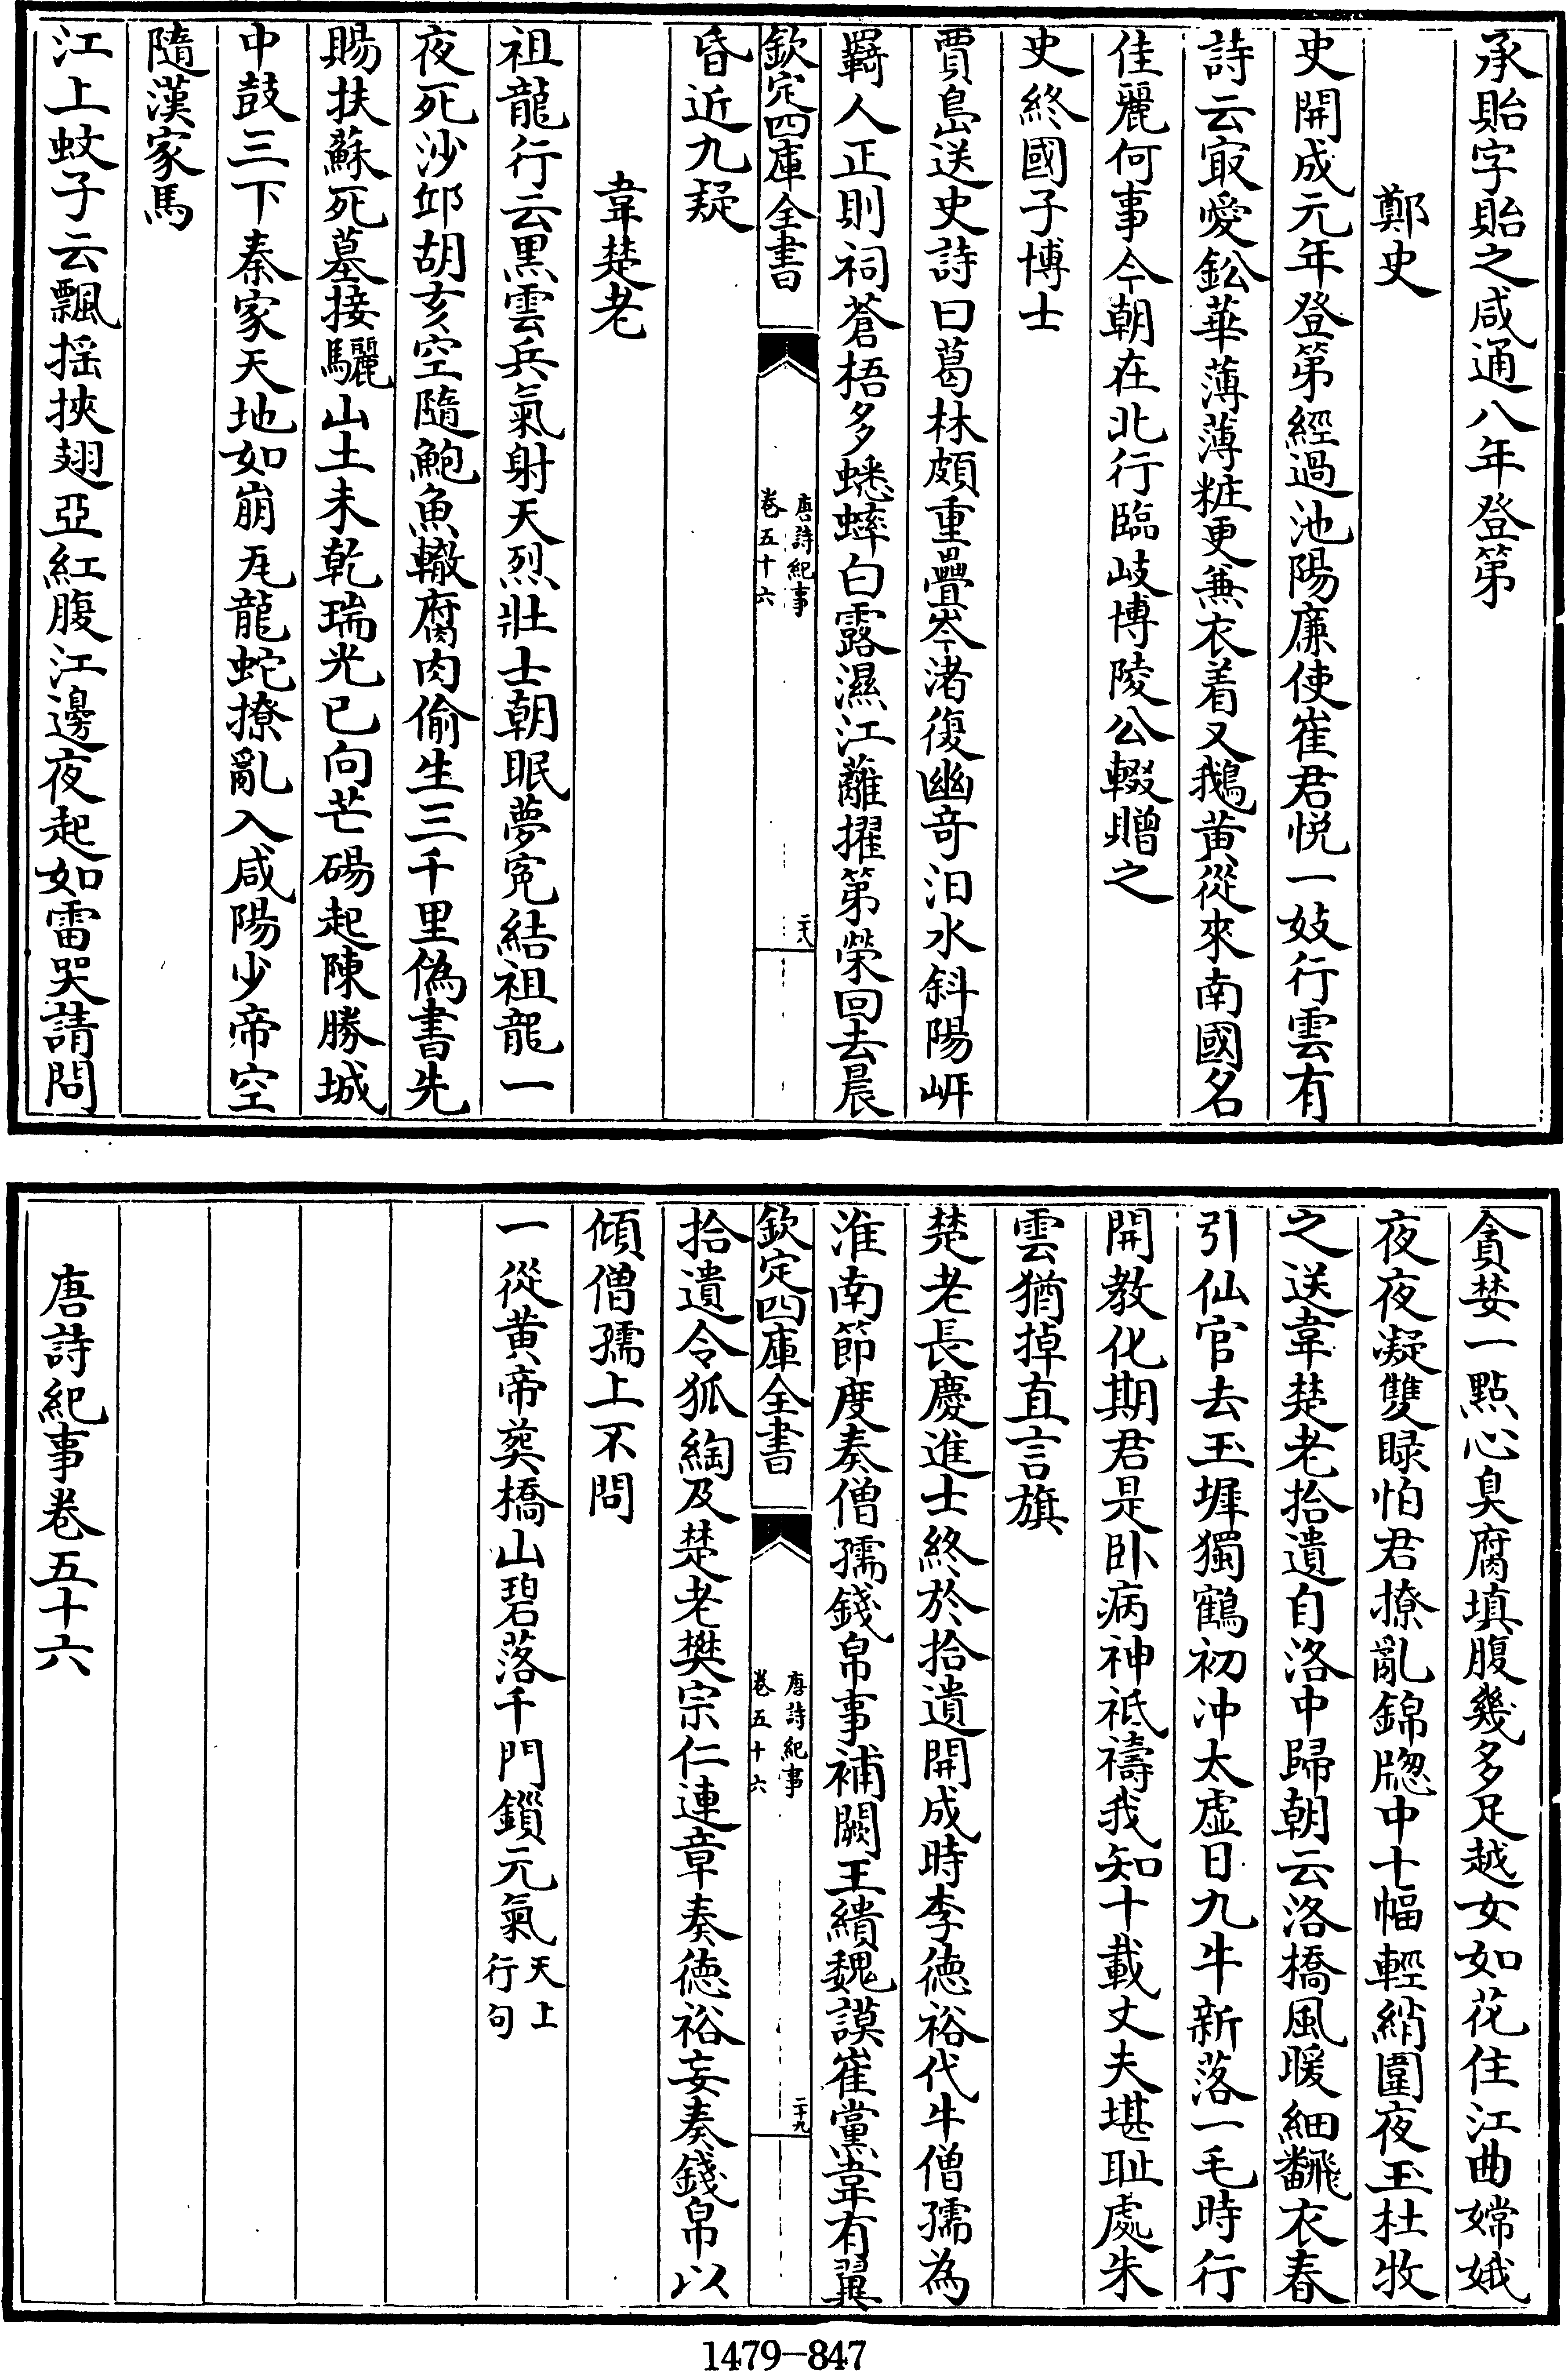 承貽字貽之咸通八年登第
鄭史
史開成元年登第經過池陽廉使崔君悦一妓行雲有
詩云㝡愛鈆華薄薄粧更兼衣着又鵝黄從來南國名
佳麗何事今朝在北行臨岐博陵公輟贈之
史終國子博士
賈島送史詩曰葛林頗重疊岑渚復幽奇汨水斜陽岍
羇人正則祠蒼梧多蟋蟀白露濕江蘺擢第榮回去晨
欽定四庫全書
唐詩紀事
卷五十六
二十八
昏近九疑
韋楚老
祖龍行云黒雲兵氣射天烈壯士朝眠夢寃結祖龍一
夜死沙邱胡亥空隨鮑魚轍腐肉偷生三千里偽書先
賜扶蘇死墓接驪山土未乾瑞光已向芒碭起陳勝城
中鼓三下秦家天地如崩瓦龍蛇撩亂入咸陽少帝空
隨漢家馬
江上蚊子云飄揺挾翅亞紅腹江邊夜起如雷哭請問
貪婪一㸃心臭腐填腹幾多足越女如花住江曲嫦娥
夜夜凝雙睩怕君撩亂錦牕中十幅輕綃圍夜玉杜牧
之送韋楚老拾遺自洛中歸朝云洛橋風暖細翻衣春
引仙官去玉墀獨鶴初冲太虚日九牛新落一毛時行
開教化期君是卧病神祗禱我知十載丈夫堪耻處朱
雲猶掉直言旗
楚老長慶進士終於拾遺開成時李徳裕代牛僧孺為
淮南節度奏僧孺錢帛事補闕王績魏謨崔黨韋有翼
欽定四庫全書
唐詩紀事
卷五十六
二十九
拾遺令狐綯及楚老樊宗仁連章奏徳裕妄奏錢帛以
傾僧孺上不問
一從黄帝葬橋山碧落千門鎖元氣天上行句
唐詩紀事卷五十六
1479-847